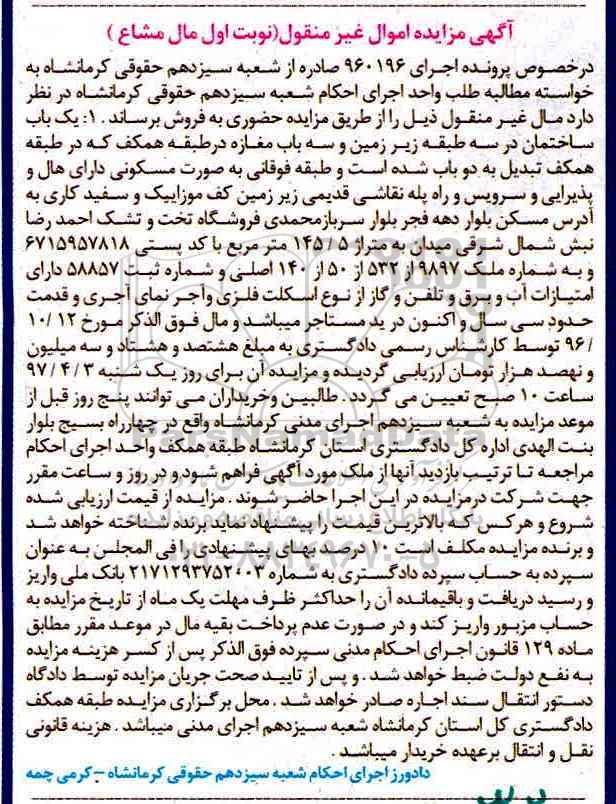 آگهی مزایده اموال غیر منقول(نوبت اول مال مشاع )
درخصوص پرونده اجرای ۹۶۰۱۹۶ صادره از شعبه سیزدهم حقوقی کرمانشاه به
خواسته مطالبه طلب واحد اجرای احکام شعبه سیزدهم حقوقی کرمانشاه در نظر
دارد مال غیر منقول ذیل را از طریق مزایده حضوری به فروش برساند . ۱: یک باب
ساختمان در سه طبقه زیر زمین و سه باب مغازه درطبقه همکف که در طبقه
همکف تبدیل به دو باب شده است و طبقه فوقانی به صورت مسکونی دارای هال و
پذیرایی و سرویس و راه پله نقاشی قدیمی زیر زمین کف موزاییک و سفید کاری به
آدرس مسکن بلوار دهه فجر بلوار سربازمحمدی فروشگاه تخت و تشک احمد رضا
نبش شمال شرقی میدان به متراژ ۱۴۵/۵ متر مربع با کد پستی ۶۷۱۵۹۵۷۸۱۸
و به شماره ملک ۹۸۹۷ از ۵۳۲ از ۵۰ از ۱۴۰ اصلی و شماره ثبت ۵۸۸۵۷ دارای
امتیازات آب و برق و تلفن و گاز از نوع اسکلت فلزی واجر نمای آجری و قدمت
حدود سی سال و اکنون در ید مستاجر میباشد و مال فوق الذکر مورخ ۱۲ /۱۰
/۹۶ توسط کارشناس رسمی دادگستری به مبلغ هشتصد و هشتاد و سه میلیون
و نهصد هزار تومان ارزیابی گردیده و مزایده آن برای روز یک شنبه ۳ /۴ /۹۷
ساعت ۱۰ صبح تعیین می گردد . طالبین وخریداران می توانند پنج روز قبل از
موعد مزایده به شعبه سیزدهم اجرای مدنی کرمانشاه واقع در چهارراه بسیج بلوار
بنت الهدی اداره کل دادگستری استان کرمانشاه طبقه همکف واحد اجرای احکام
مراجعه تا ترتیب بازدید آنها از ملک مورد آگهی فراهم شود و در روز و ساعت مقرر
جهت شرکت درمزایده در این اجرا حاضر شوند . مزایده از قیمت ارزیابی شده
شروع و هرکس که بالاترین قیمت را پیشنهاد نماید برنده شناخته خواهد شد
و برنده مزایده مکلف است ۱۰ درصد بهای پیشنهادی را فی المجلس به عنوان
سپرده به حساب سپرده دادگستری به شماره ۲۱۷۱۲۹۳۷۵۲۰۰۳ بانک ملی واریز
و رسید دریافت و باقیمانده آن را حداکثر ظرف مهلت یک ماه از تاریخ مزایده به
حساب مزبور واریز کند و در صورت عدم پرداخت بقیه مال در موعد مقرر مطابق
ماده ۱۲۹ قانون اجرای احکام مدنی سپرده فوق الذکر پس از کسر هزینه مزایده
به نفع دولت ضبط خواهد شد . و پس از تایید صحت جریان مزایده توسط دادگاه
دستور انتقال سند اجاره صادر خواهد شد . محل برگزاری مزایده طبقه همکف
دادگستری کل استان کرمانشاه شعبه سیزدهم اجرای مدنی میباشد . هزینه قانونی
نقل و انتقال برعهده خریدار میباشد .
دادورز اجرای احکام شعبه سیزدهم حقوقی کرمانشاه – کرمی چمه